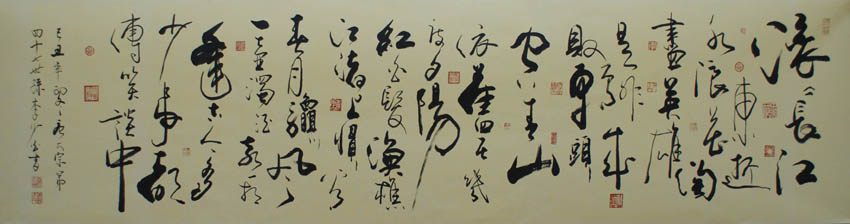 滚〻長江
東逝
水浪花淘
盡英雄
是非成
敗轉頭
空青山
依舊在幾
度夕陽
紅白髮漁樵
江渚上慣看
春月龝風
一壺濁酒喜相
逢古今多
少事都
傅笑談中
己丑年 唐太宗第
四十七世孫李 書